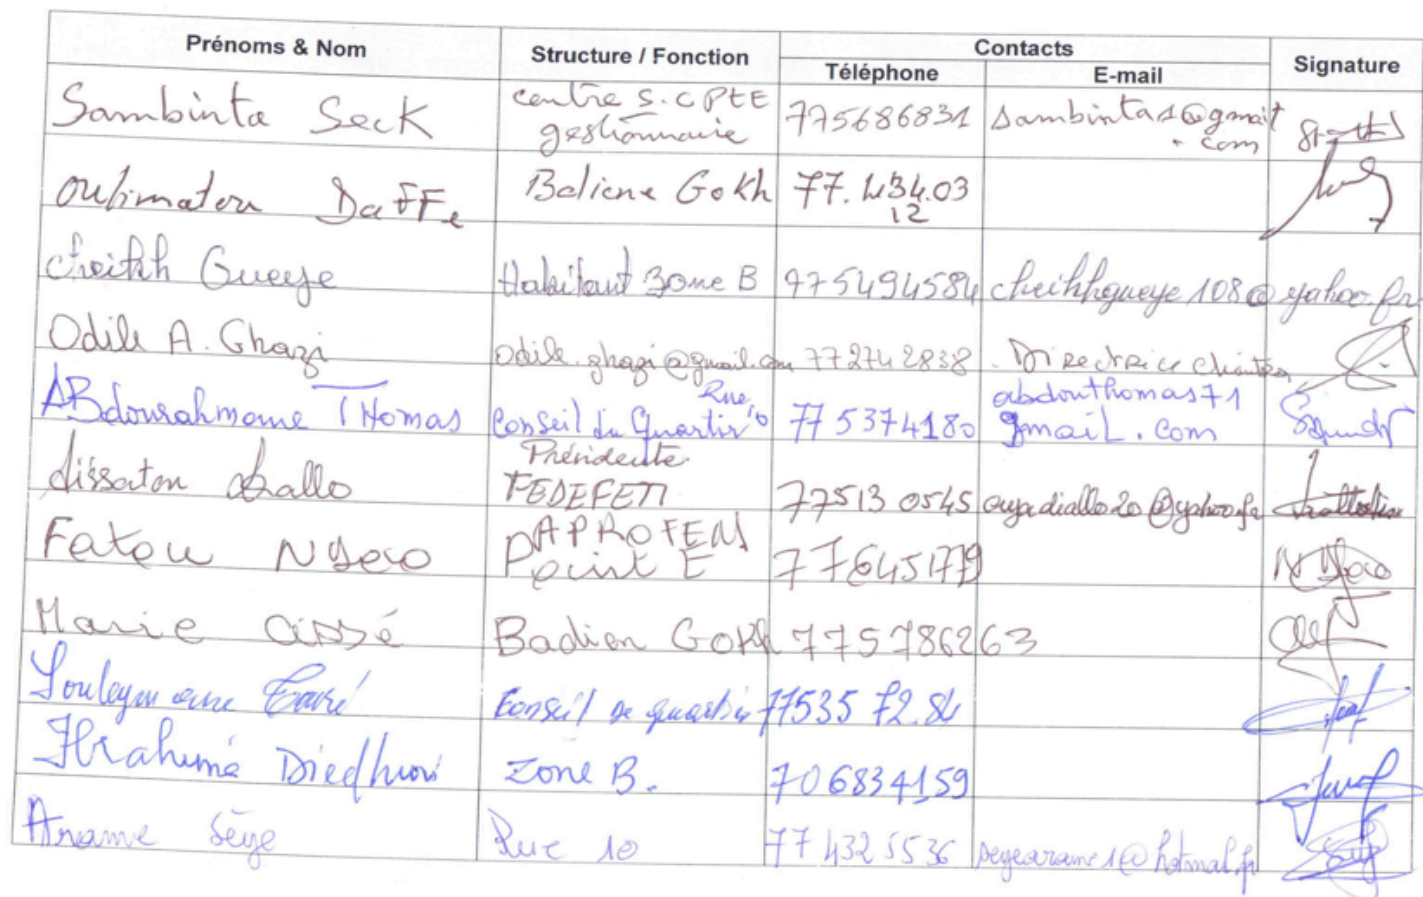 Prénoms & Nom Structure / Fonction Contacts Signature
Téléphone E-mail
Sambinta Seck centre S. CPEE gestionnaire 775686831 Sambintas1@gmail.com
Daffe Beliene Gokh 77.434.03 12
Cheikh Gueye Habitant Zone B 775494584 cheikhgueye108@yahoo.fr
Odile A. Ghazi odile.ghazi@gmail.com 772742838 Directrice
ABdourahmane THomas Conseil du Quartier Rue 10 775374180 abdouthomas71 gmail.com
Aissatou diallo Présidente FEDEFETI 77513 0545 ouyadiallo20@yahoo.fr
Fatou NDAO APROFEN Point E 776451779
Marie Cissé Badien Gokh 775786263
Souleymane Conseil de quartier 77535 72.84
Ibrahima Diedhiou Zone B. 706834159
Arame Sèye Rue 10 77 432 5536 seyearame1@hotmal.fr